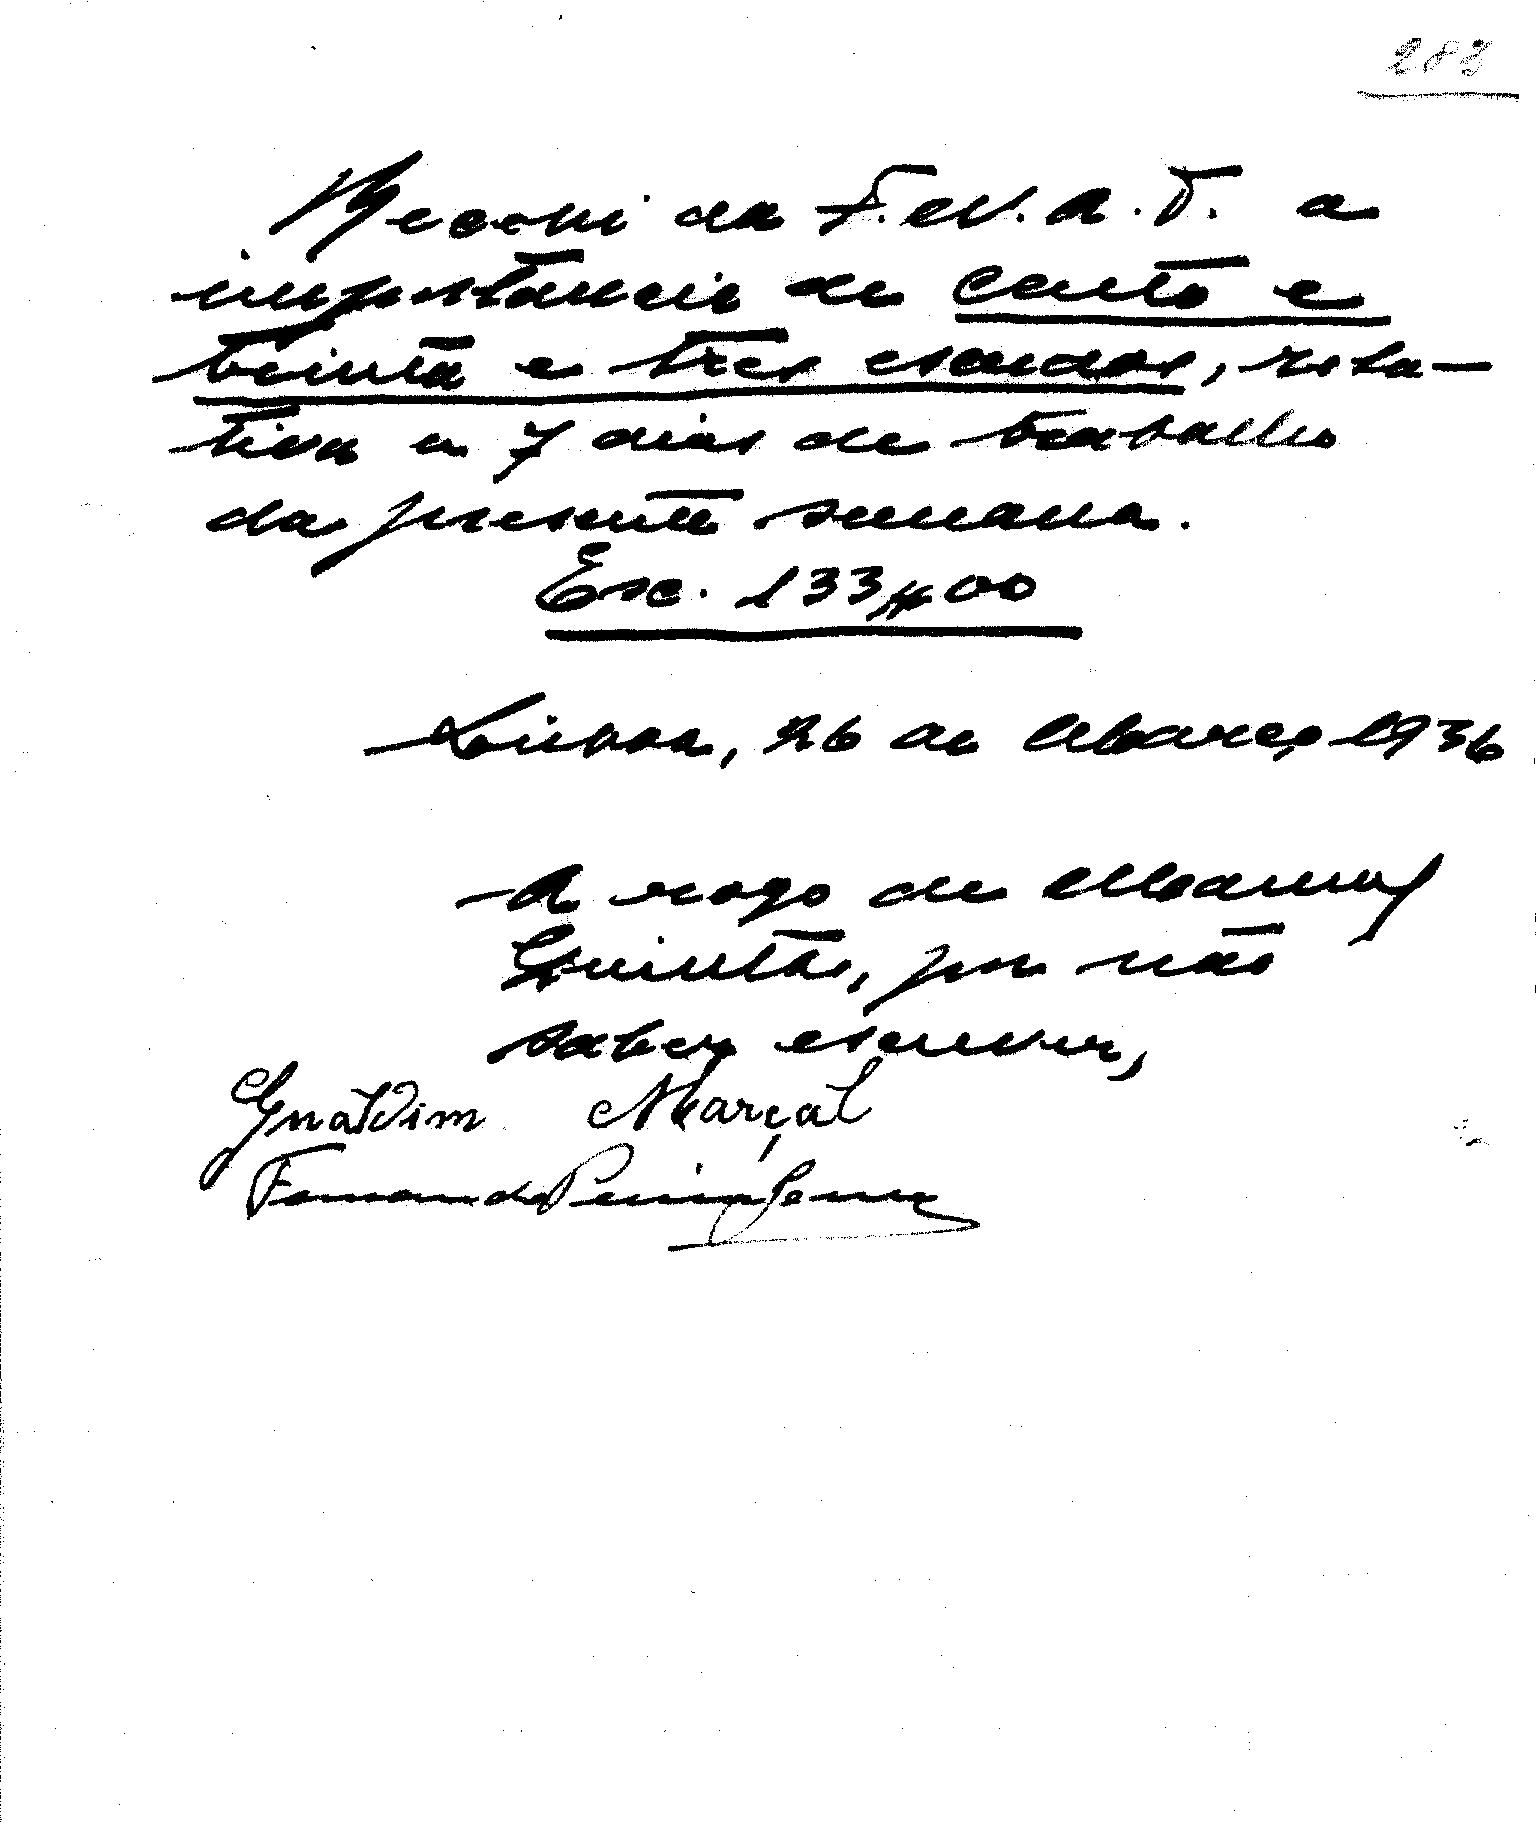 283
Recebi da F. e N. A. T. a
importancia de cento e
trinta e tres escudos, rela-
tiva a 7 dias de trabalho
da presente semana.
Esc. 133$00
Lisboa, 26 de Março 1936
A rogo de Manuel
Quintas, por não
saber escrever,
Gualdim Marçal
Fernando